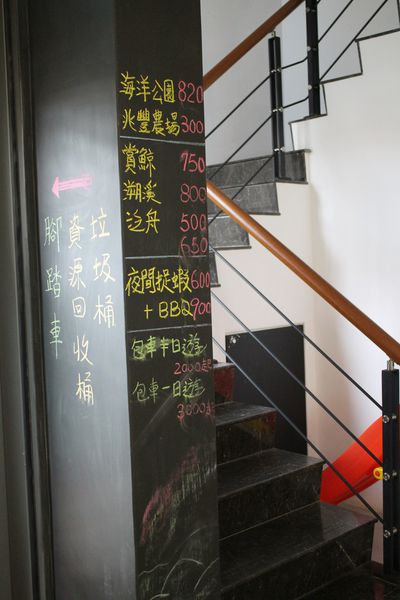 海洋公園 820
兆豐農場 300
賞鯨 750
溯溪 800
泛舟 500
650
夜間捉蝦 600
+BBQ 900
包車半日遊
2000起
包車一日遊
3000起
垃圾桶
資源回收桶
腳踏車